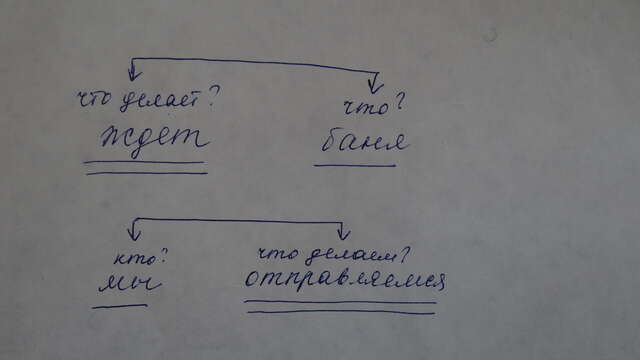 что делает? что?
ждет баня
кто? что делаем?
мы отправляемся